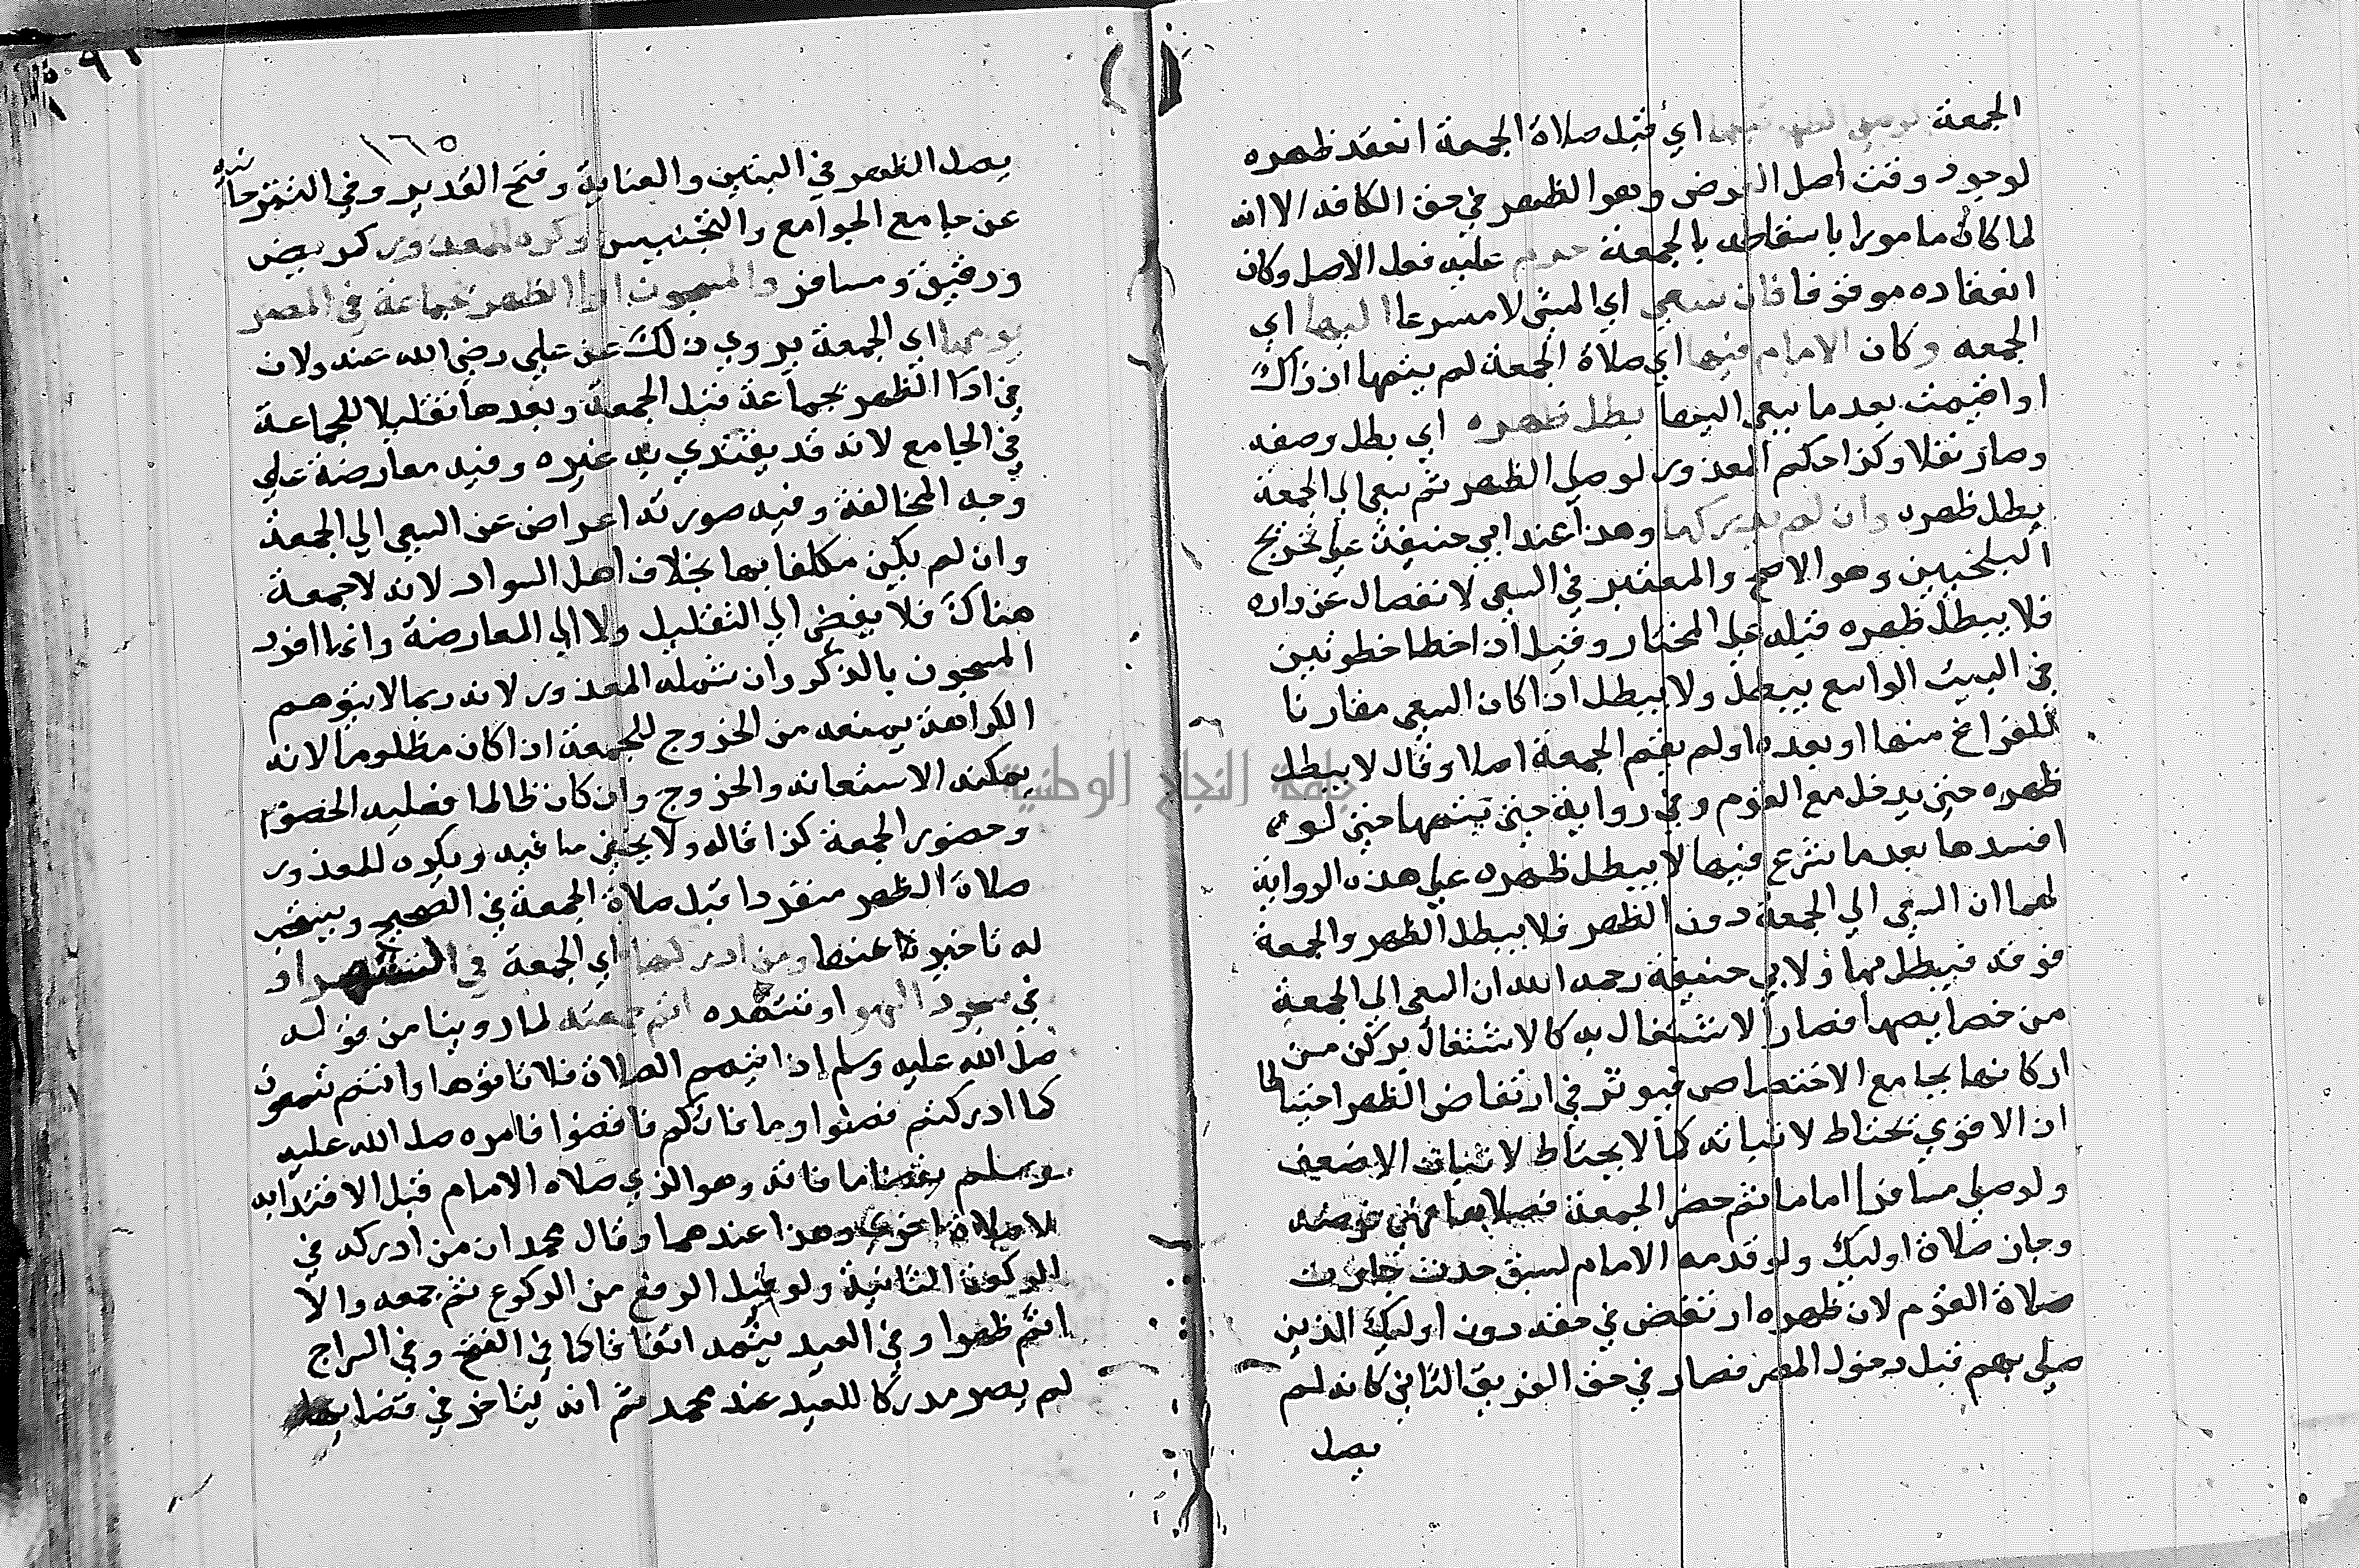 الجمعة اي قبل صلاة الجمعة انعقد ظهره
لوجود وقت اصل الفرض وهو الظهر في حق الكافه الا انه
لما كان مامورا باسقاطه بالجمعة حرم عليه فعل الاصل وكان
انعقاده موقوفا فان سعي اي المشي لا مسرعا اليها اي
الجمعه وكان الامام فيها اي صلاة الجمعة لم يتمها اذ ذاك
او اقيمت بعد ما سعي اليها بطل ظهره اي بطل وصفه
وصار نفلا وكذا حكم المعذور لو صلي الظهر ثم سعي الي الجمعة
بطل ظهره وان لم يدركها وهذا عند ابي حنيفة علي تخريج
البلخيين وهو الاصح والمعتبر في السعي الانفصال عن داره
فلا يبطل ظهره قبله علي المختار وقيل اذا خطا خطوتين
في البيت الواسع يبطل ولا يبطل اذا كان السعي مقارنا
للفراغ منها او بعده او لم يقم الجمعة اصلا وقال لا يبطل
ظهره حتي يدخل مع القوم وفي رواية حتي يتمها حتي لو
افسدها بعد ما شرع فيها لا يبطل ظهره علي هذه الرواية
لهما ان السعي الي الجمعة دون الظهر فلا يبطل الظهر والجمعة
فوقه فيبطل بها ولابي حنيفة رحمه الله ان السعي الي الجمعة
من خصايصها فصار الاشتغال به كالاشتغال بركن من
اركانها بجامع الاختصاص فيوثر في ارتفاض الظهر احتياطا
اذ الاقوي يحتاط لاتيانه كما لا يحتاط لاتيان الاضعف
ولو صلي مسافر اماما ثم حضر الجمعة فصلاها فهي فرضه
وجاز صلاة اوليك ولو قدمه الامام لسبق حدث جازت
صلاة القوم لان ظهره ارتفض في حقه دون اوليك الذين
صلي بهم قبل دخول المصر فصار في حق الفريق الثاني كانه لم
يصل
١٦٥
يصل الظهر في التبيين والعناية وفتح القدير وفي التترخانيه
عن جامع الجوامع والتجنيس وكره للمعذور كمريض
ورقيق ومسافر والمسجون ادا الظهر بجماعة في المصر
يومها اي الجمعة يروي ذلك عن علي رضي الله عنه ولان
في ادا الظهر بجماعة قبل الجمعة وبعدها تقليلا للجماعة
في الجامع لانه قد يقتدي به غيره وفيه معارضة علي
وجه المخالفة وفيه صورته اعراض عن السعي الي الجمعة
وان لم يكن مكلفا بها بخلاف اهل السواد لانه لا جمعة
هناك فلا يفضي الي التقليل ولا الي المعارضة وانما افرد
المسجون بالذكر وان شمله المعذور لانه ربما لا يتوهم
الكراهة بمنعه من الخروج للجمعة اذا كان مظلوما لانه
يمكنه الاستعانه والخروج وان كان ظالما فعليه الخصوم
وحضور الجمعة كذا قاله ولا يخفي ما فيه ويكره للمعذور
صلاة الظهر منفردا قبل صلاة الجمعة في الصحيح ويستحب
له تاخيرها عنها ومن ادركها اي الجمعة في التشهد او
في سجود السهو او تشهده اتم جمعته لما روينا من قوله
صلي الله عليه وسلم اذا اتيتم الصلاة فلا تاتوها وانتم تسعون
كما ادركتم فصلوا وما فاتكم فاقضوا فامره صلي الله عليه
وسلم بقضا ما فاته وهو الذي صلاه الامام قبل الاقتدا به
لا صلاة اخري وهذا عندهما وقال محمد ان من ادركه في
الركوع الثانية ولو قبل الرفع من الركوع تتم جمعه والا
اتم ظهرا وفي العيد يتمه اتفاقا كما في الفتح وفي السراج
لم يصر مدركا للعيد عند محمد ثم انه يتاخر في قضا